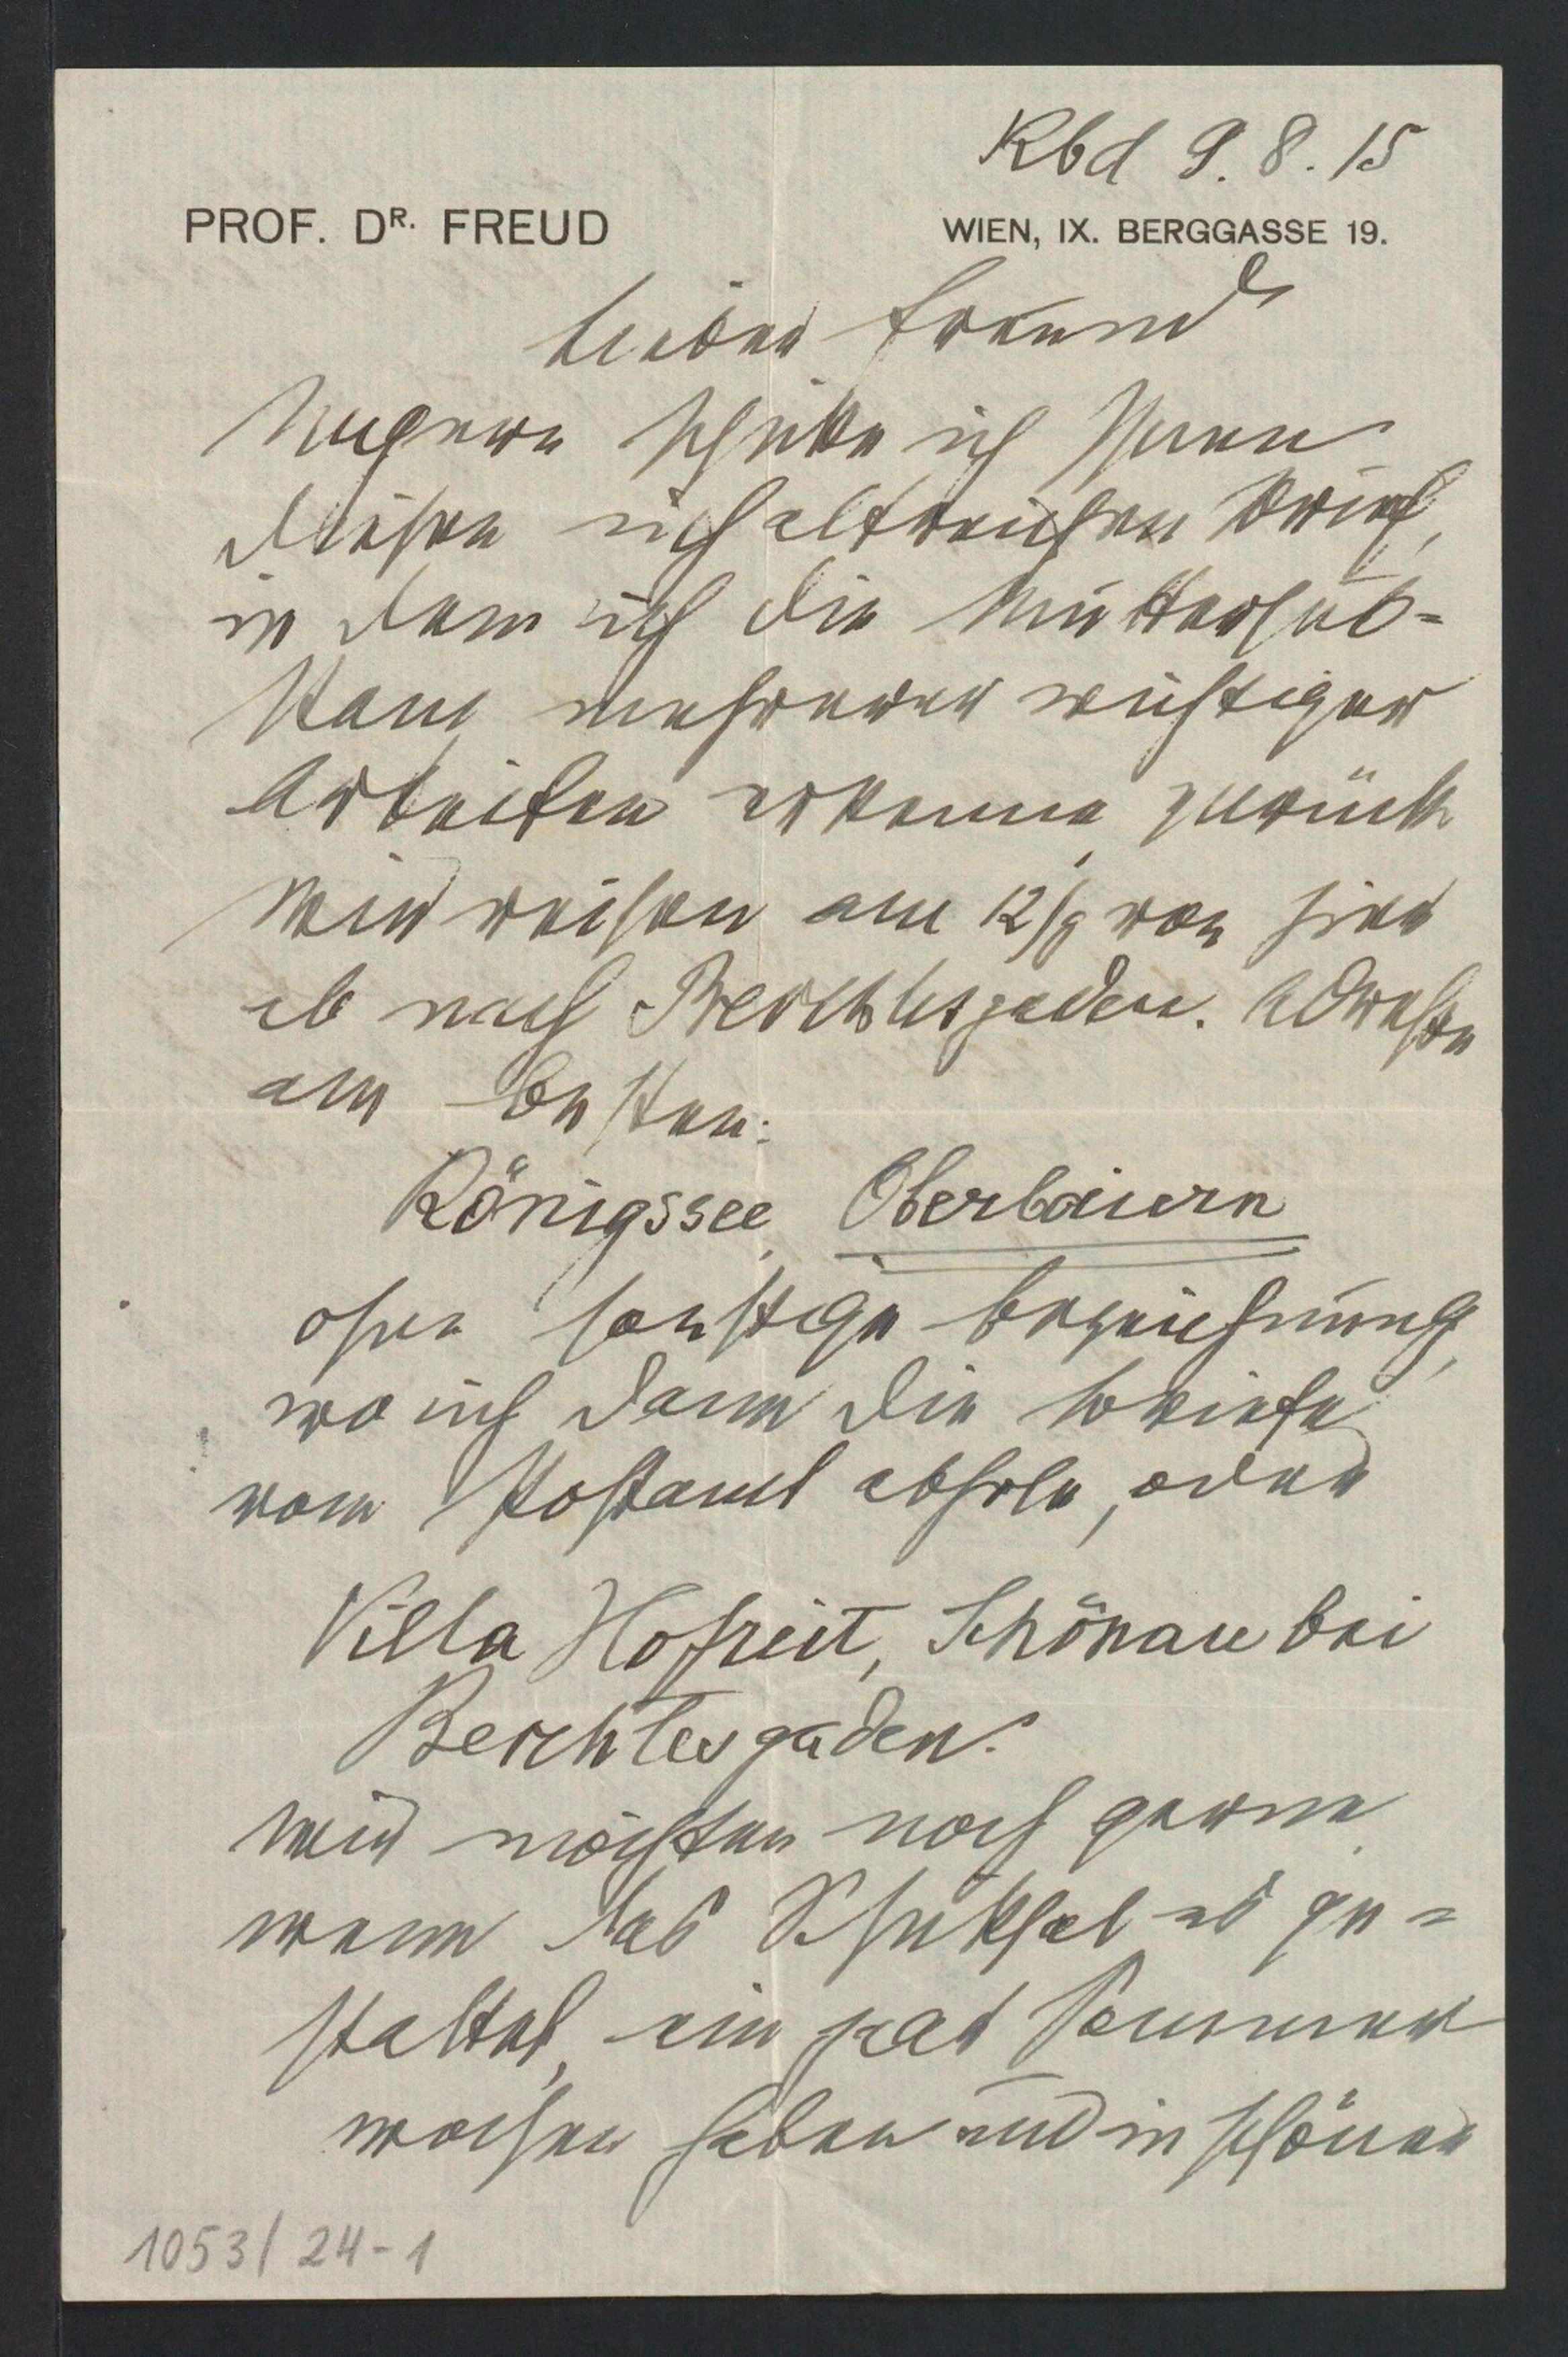 Kbd 9. 8. 15
PROF. DR. FREUD WIEN, IX. BERGGASSE 19.
Lieber Freund
Ungern schicke ich Ihnen
diesen inhaltreichen Brief,
in dem ich die Muttersub-
stanz mehrerer wichtiger
Arbeiten erkenne, zurück
Wir reisen am 12/8 von hier
ab nach Berchtesgaden. Adresse
am besten:
Königssee, Oberbaiern
ohne sonstige Bezeichnung,
wo ich dann die Briefe
vom Postamt abhole, oder
Villa Hofreit, Schönau bei
Berchtesgaden.
Wir möchten noch gerne,
wenn das Schicksal es ge-
stattet, ein paar Sommer
wochen haben und in schöner
1053/24-1